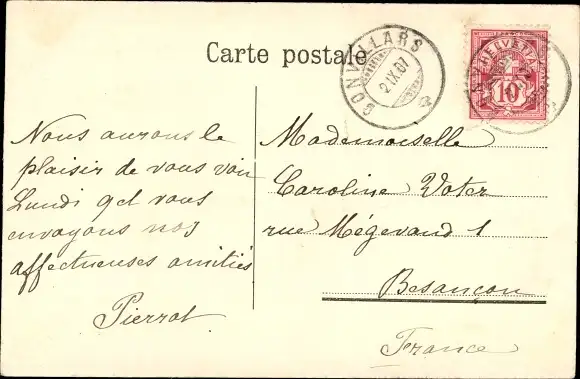 Carte postale
CONVILLARS
2.IX.07
HELVETIA
10
Nous aurons le
plaisir de vous voir
Lundi
vous
envoyons nos
affectueuses amitiés
Pierrot
Mademoiselle
Caroline Voter
rue Mégevand 1
Besançon
France